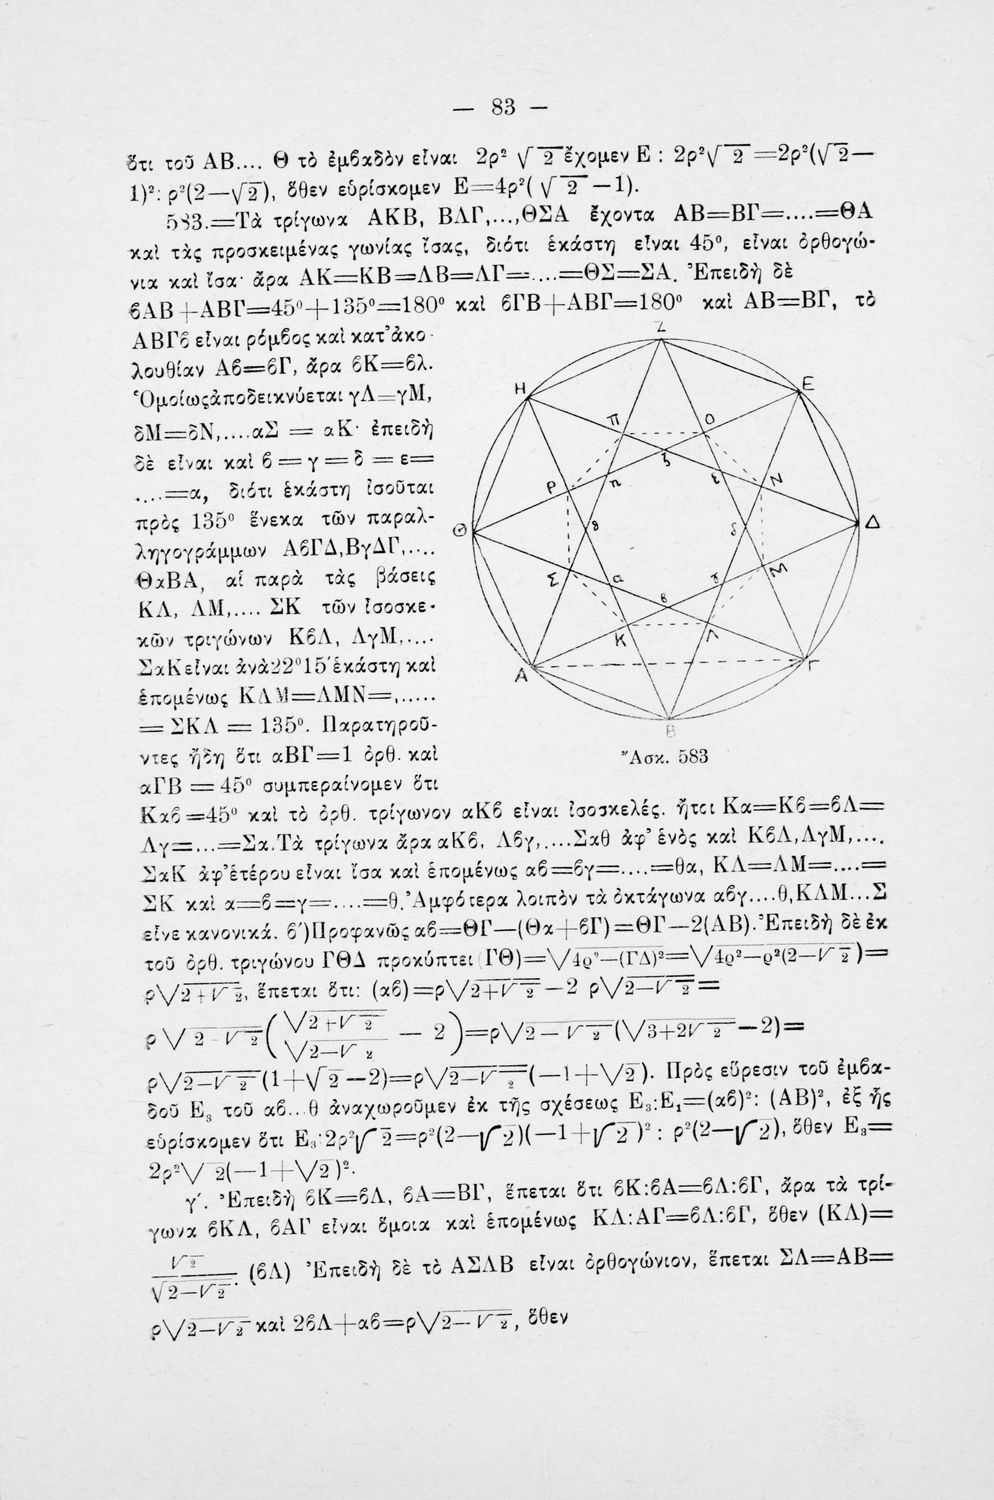 — 83 —
ὅτι τοῦ ΑΒ.... Θ τὸ ἐμβαδὸν εἶναι 2ρ² √2 ἔχομεν Ε : 2ρ²√2 =2ρ²(√2—
1)²: ρ²(2—√2), ὅθεν εὑρίσκομεν Ε=4ρ²( √2 —1).
583.=Τὰ τρίγωνα ΑΚΒ, ΒΛΓ,...,ΘΣΑ ἔχοντα ΑΒ=ΒΓ=....=ΘΑ
καὶ τὰς προσκειμένας γωνίας ἴσας, διότι ἑκάστη εἶναι 45⁰, εἶναι ὀρθογώ-
νια καὶ ἴσα· ἄρα ΑΚ=ΚΒ=ΛΒ=ΛΓ=....=ΘΣ=ΣΑ. Ἐπειδὴ δὲ
ϐΑΒ+ΑΒΓ=45⁰+135⁰=180⁰ καὶ ϐΓΒ+ΑΒΓ=180⁰ καὶ ΑΒ=ΒΓ, τὸ
ΑΒΓϐ εἶναι ρόμβος καὶ κατ' ἀκο-
λουθίαν Αϐ=ϐΓ, ἄρα ϐΚ=ϐλ.
Ὁμοίως ἀποδεικνύεται γΛ=γΜ,
δΜ=δΝ,....αΣ = αΚ· ἐπειδὴ
δὲ εἶναι καὶ ϐ = γ = δ = ε=
....=α, διότι ἑκάστη ἰσοῦται
πρὸς 135⁰ ἕνεκα τῶν παραλ-
ληγογράμμων ΑϐΓΔ,ΒγΔΓ,....
ΘαΒΑ, αἱ παρὰ τὰς βάσεις
ΚΛ, ΛΜ,.... ΣΚ τῶν ἰσοσκε-
κῶν τριγώνων ΚϐΛ, ΛγΜ,....
ΣαΚ εἶναι ἀνὰ 22⁰15΄ ἑκάστη καὶ
ἑπομένως ΚΛΜ=ΛΜΝ=,.....
= ΣΚΛ = 135⁰. Παρατηροῦ-
ντες ἤδη ὅτι αΒΓ=1 ὀρθ. καὶ
αΓΒ = 45⁰ συμπεραίνομεν ὅτι
Ζ
Η
Ε
Π
Ο
ζ
Ρ
η
ε
Ν
Θ
θ
δ
Δ
Σ
α
γ
Μ
ϐ
Κ
Λ
Α
Γ
Β
Ἄσκ. 583
Καϐ=45⁰ καὶ τὸ ὀρθ. τρίγωνον αΚϐ εἶναι ἰσοσκελές. ἤτοι Κα=Κϐ=ϐΛ=
Λγ=...=Σα. Τὰ τρίγωνα ἄρα αΚϐ, Λϐγ,....Σαθ ἀφ' ἑνὸς καὶ ΚϐΛ,ΛγΜ,....
ΣαΚ ἀφ' ἑτέρου εἶναι ἴσα καὶ ἑπομένως αϐ=ϐγ=....=θα, ΚΛ=ΛΜ=....=
ΣΚ καὶ α=ϐ=γ=....=θ. Ἀμφότερα λοιπὸν τὰ ὀκτάγωνα αϐγ....θ,ΚΛΜ...Σ
εἶνε κανονικά. ϐ΄) Προφανῶς αϐ=ΘΓ—(Θα+ϐΓ)=ΘΓ—2(ΑΒ). Ἐπειδὴ δὲ ἐκ
τοῦ ὀρθ. τριγώνου ΓΘΔ προκύπτει (ΓΘ)=√4ρ²—(ΓΔ)²=√4ρ²—ρ²(2—√2)=
ρ√2+√2, ἕπεται ὅτι: (αϐ)=ρ√2+√2—2 ρ√2—√2=
ρ√2-√2(√2+√2/√2—√2 — 2)=ρ√2—√2(√3+2√2—2)=
ρ√2—√2(1+√2—2)=ρ√2—√2(—1+√2). Πρὸς εὕρεσιν τοῦ ἐμβα-
δοῦ Ε₃ τοῦ αϐ...θ ἀναχωροῦμεν ἐκ τῆς σχέσεως Ε₃:Ε₁=(αϐ)²: (ΑΒ)², ἐξ ἧς
εὑρίσκομεν ὅτι Ε₃:2ρ²√2=ρ²(2—√2)(—1+√2)² : ρ²(2—√2), ὅθεν Ε₃=
2ρ²√2(—1+√2)².
γ΄. Ἐπειδὴ ϐΚ=ϐΛ, ϐΑ=ΒΓ, ἕπεται ὅτι ϐΚ:ϐΑ=ϐΛ:ϐΓ, ἄρα τὰ τρί-
γωνα ϐΚΛ, ϐΑΓ εἶναι ὅμοια καὶ ἑπομένως ΚΛ:ΑΓ=ϐΛ:ϐΓ, ὅθεν (ΚΛ)=
√2/√2—√2. (ϐΛ) Ἐπειδὴ δὲ τὸ ΑΣΛΒ εἶναι ὀρθογώνιον, ἕπεται ΣΛ=ΑΒ=
ρ√2—√2 καὶ 2ϐΛ+αϐ=ρ√2—√2, ὅθεν